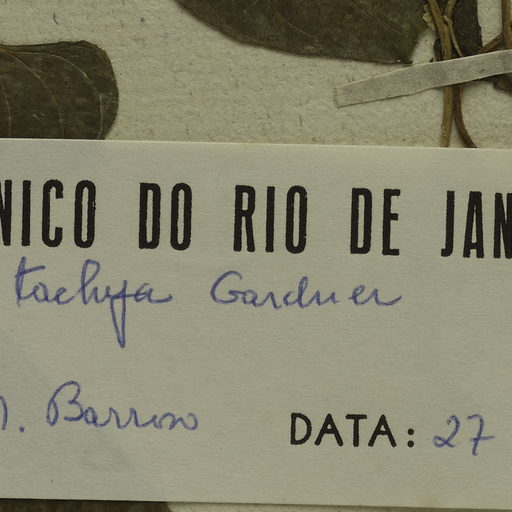 NICO DO RIO DE JAN
tachya Gardner
. Barroso
DATA: 27